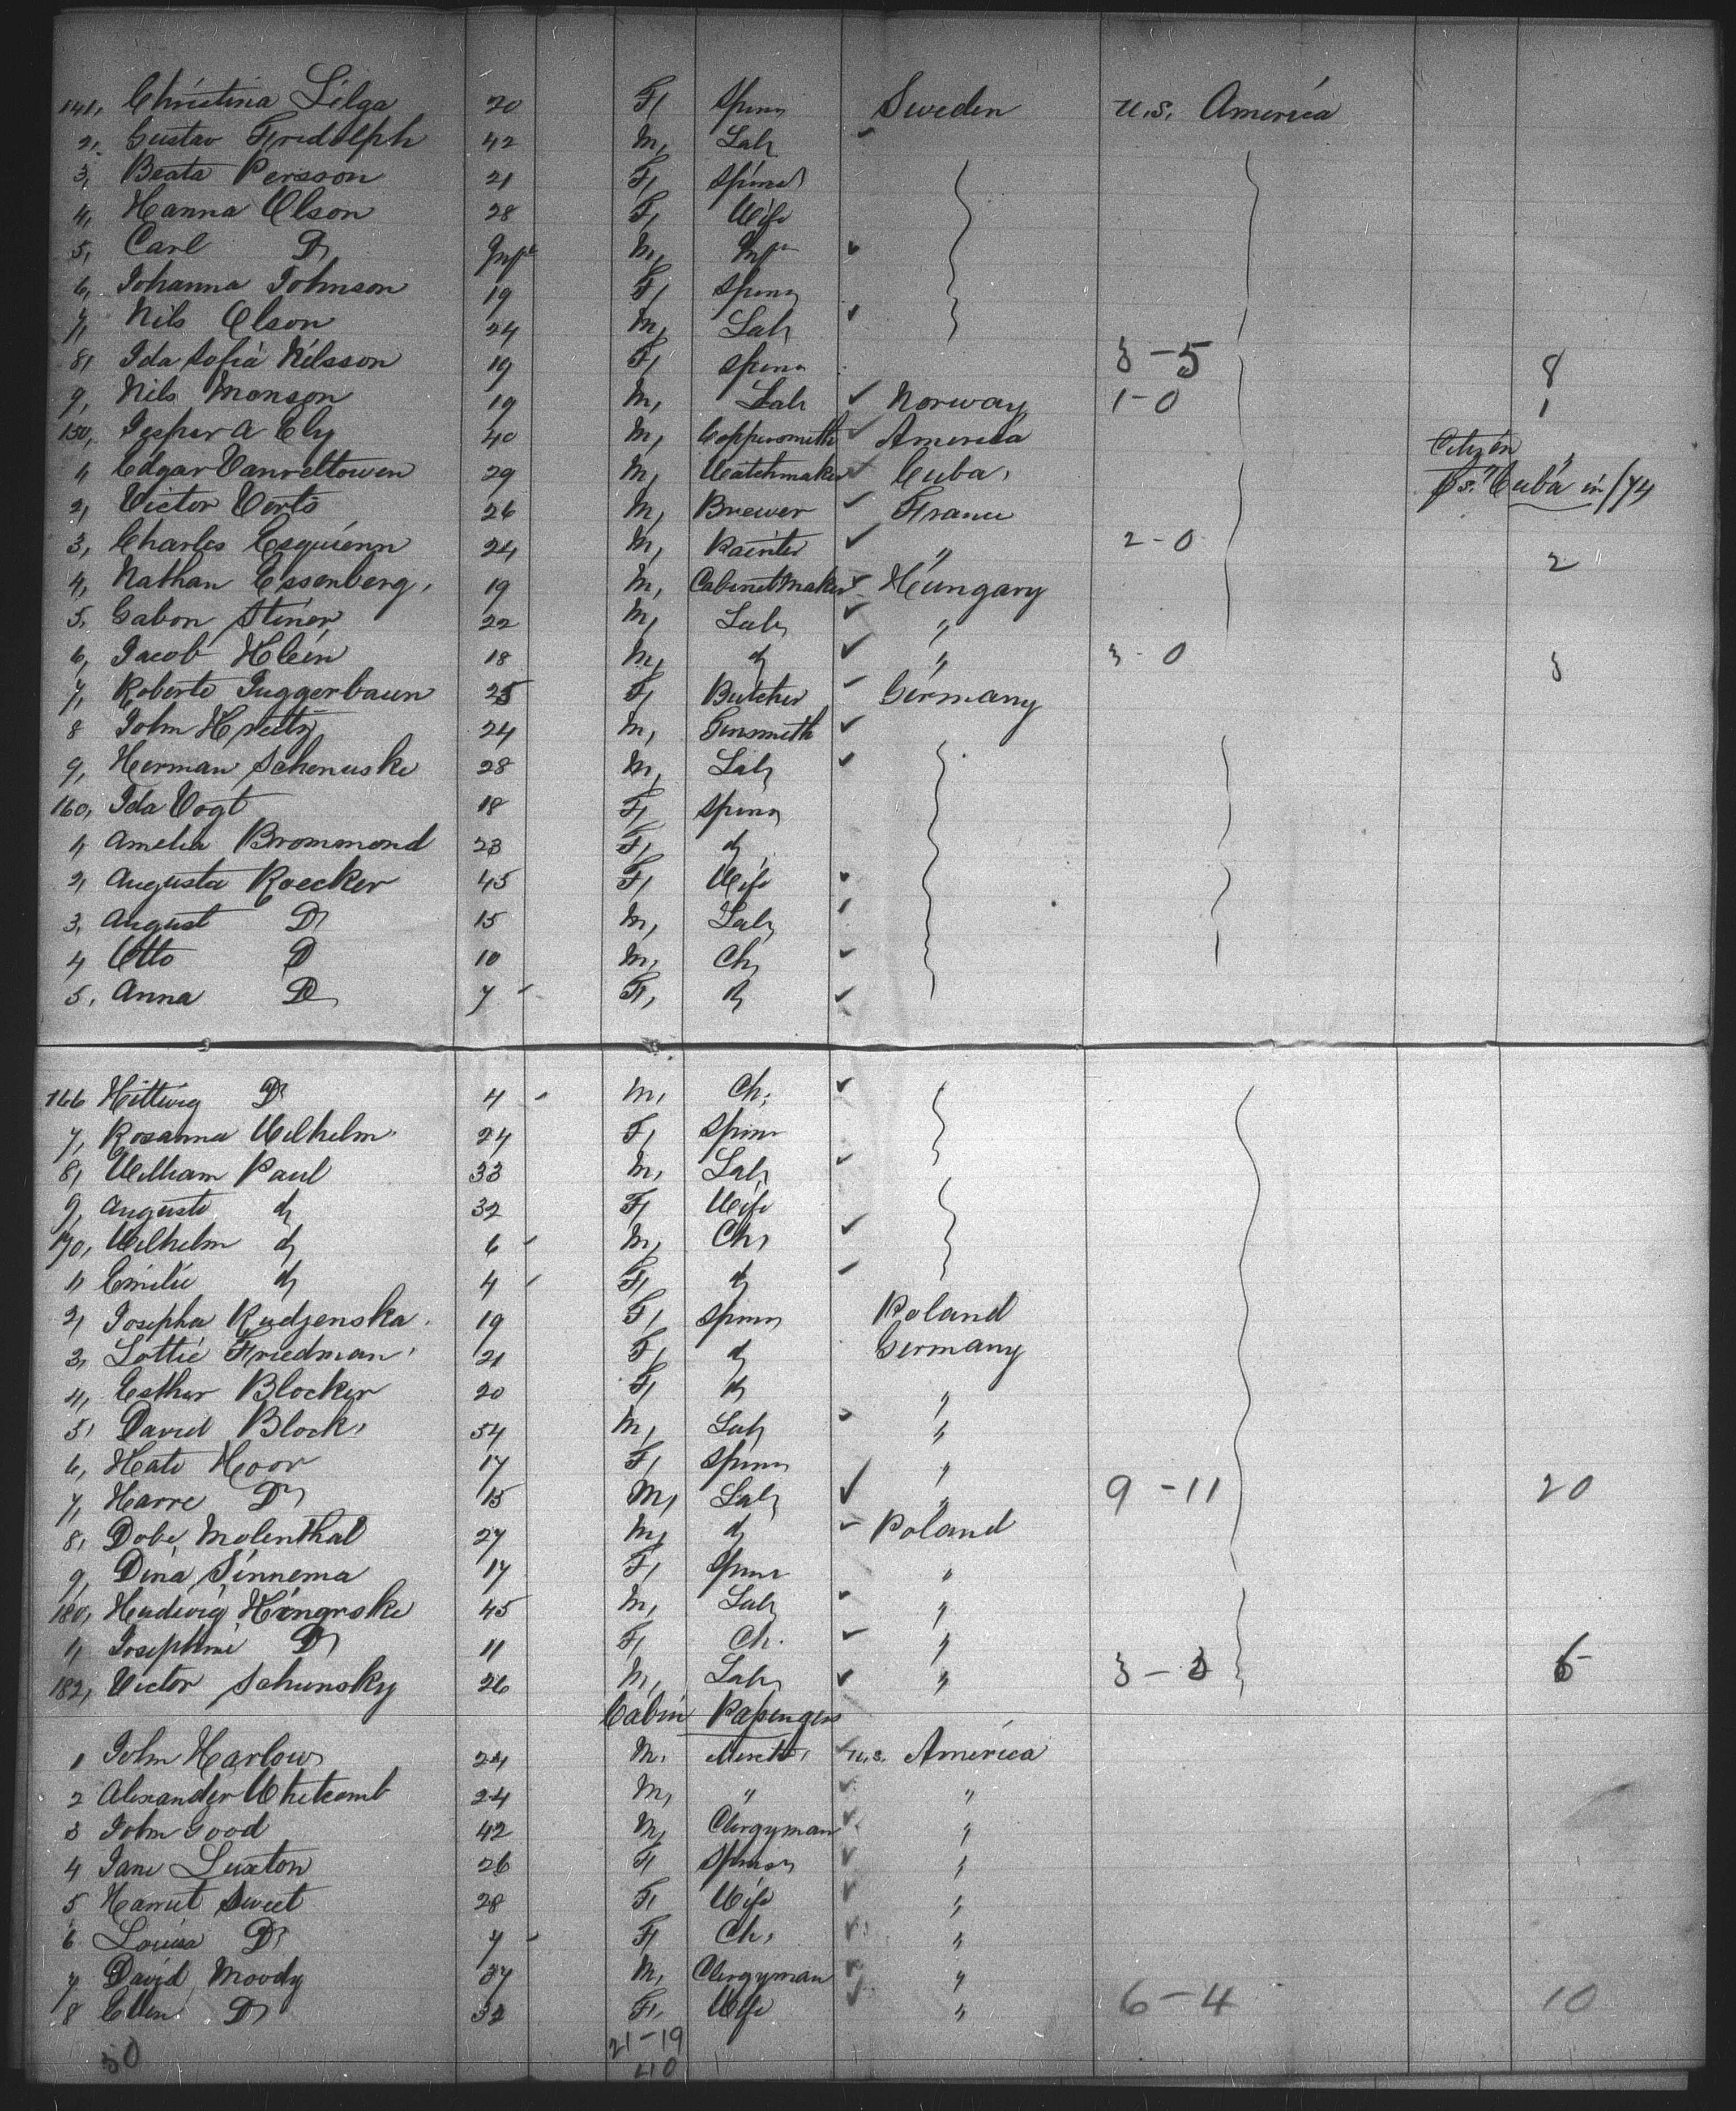 141, Christina Lilga 20 F, Spinr Sweden U.S. America
2, Gustav Fridolph 42 M, Labr
3, Beata Persson 21 F, Spinsr
4, Hanna Olson 28 F, Wife
5, Carl Do Inft M, Inft
6, Johanna Johnson 19 F, Spinr
7, Nils Olson 24 M, Labr
8, Ida Sofia Nilsson 19 F, Spinr 3-5 8
9, Nils Monson 19 M, Labr Norway 1-0 1
150, Jesper A Ely 40 M, Coppersmith America Citizen
1, Edgar 29 M, Watchmaker Cuba, Cuba in /74
2, Victor Verts 26 M, Brewer France
3, Charles Esquienn 24 M, Painter " 2-0 2
4, Nathan Essenberg, 19 M, Cabinet Maker Hungary
5, Gabon Stiner 22 M, Labr "
6, Jacob Klein 18 M, do " 3-0 3
7, Roberte Juggerbaun 25 F, Butcher Germany
8 John 24 M, Gunsmith
9, Herman Schenuske 28 M, Labr
160, Ida Vogt 18 F, Spinr
1, Amelia Brommond 23 F, do
2, Augusta Roecker 45 F, Wife
3, August Do 15 M, Labr
4 Otto Do 10 M, Ch,
5, Anna Do 7 F, do
166 Hittwig Do 4 M, Ch,
7, Rosanna Wilhelm 24 F, Spinr
8, William Paul 33 M, Labr
9, Auguste do 32 F, Wife
170, Wilhelm do 6 M, Ch,
1, Emilie do 4 F, do
2, Josepha Rudzenska 19 F, Spinr Poland
3, Lottie Friedman 21 F, do Germany
4, Esther Blocker 20 F, do "
5, David Block, 54 M, Labr "
6, Kate Koor 17 F, Spinr "
7, Harre Do 15 M, Labr " 9-11 20
8, Dobe Molenthal 27 M, do Poland
9, Dina Sinnema 17 F, Spinr "
180, Hedwig Kingrske 45 M, Labr "
1, Josephine Do 11 F, Ch. "
182, Victor Schunsky 26 M, Labr " 3-3 6
Cabin Passengers
1 John Harlow 24 M, Mercht, U.S. America
2 Alexander Whitcomb 24 M, " "
3 John Good 42 M, Clergyman "
4 Jane Luxton 26 F, Spinsr "
5 Harriet Sweet 28 F, Wife "
6 Louisa Do 7 F, Ch, "
7 David Moody 37 M, Clergyman "
8 Ellen Do 32 F, Wife " 6-4 10
50 21-19
40